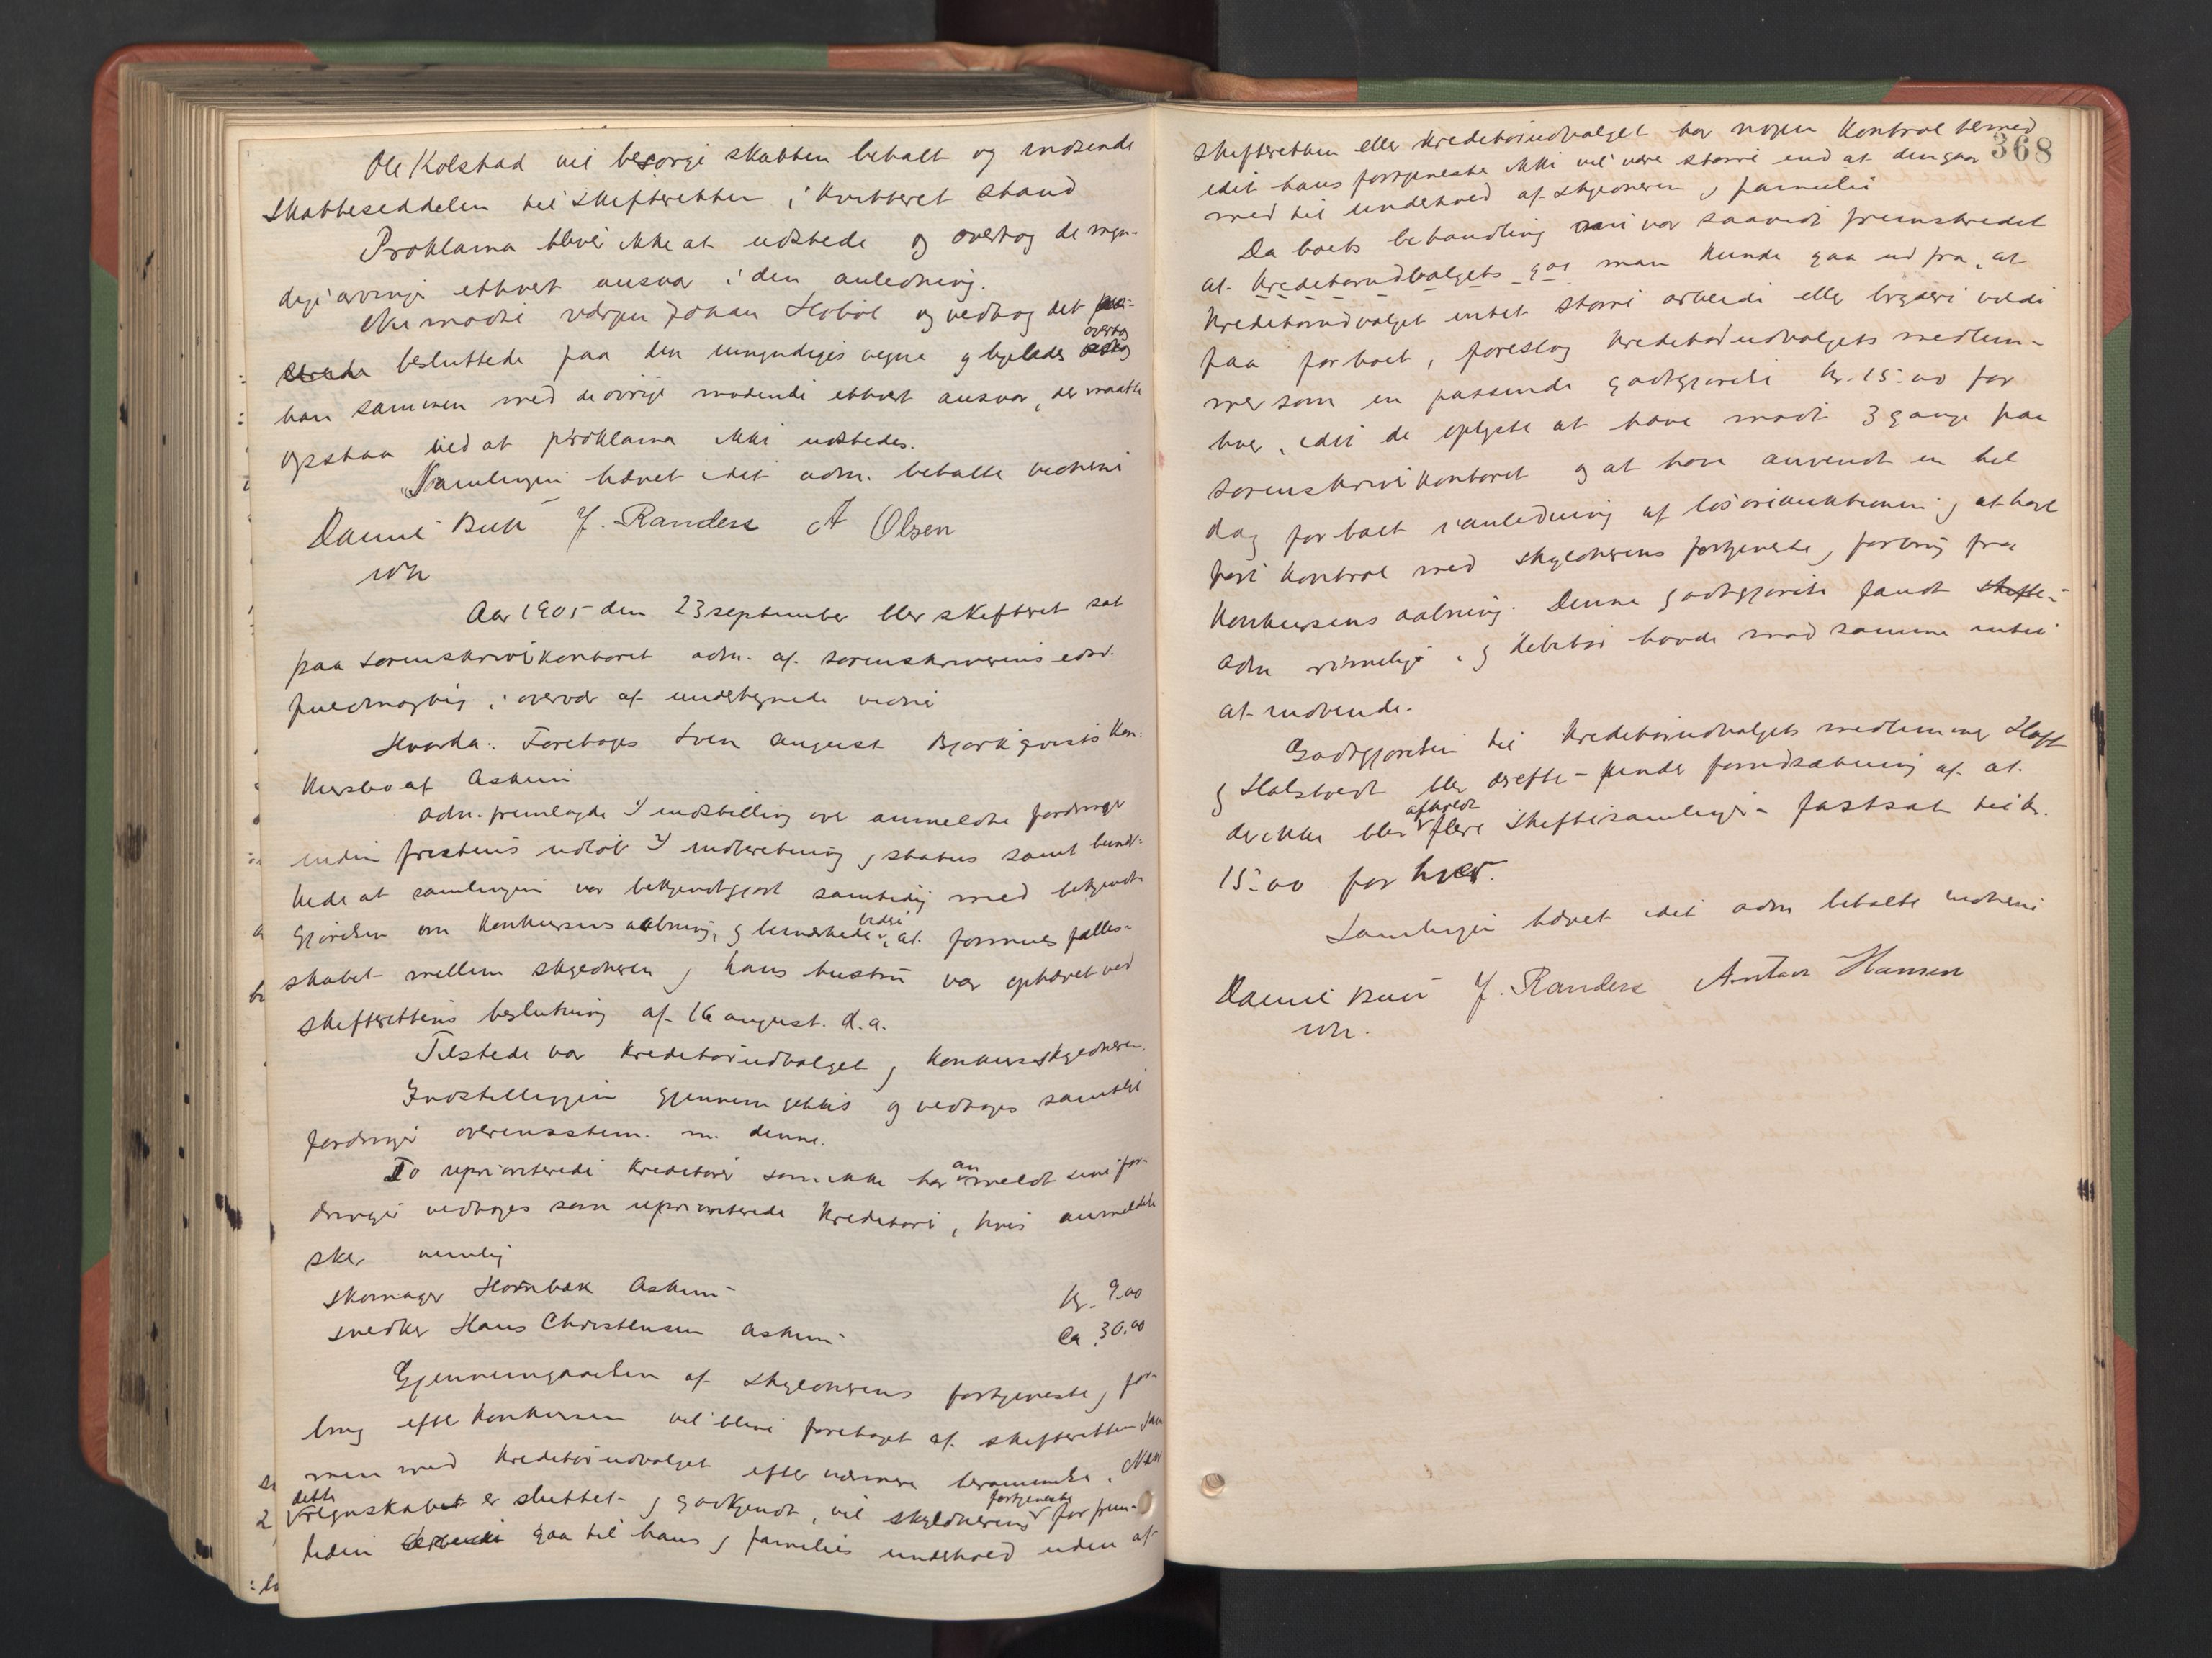 Ole Kolstad vil besørge skatten betalt og indsende
skatteseddelen til skifteretten i kvitteret stand
Proklama bliver ikke at udstede og overtog de myn-
dige arvinger ethvert ansvar i den anledning.
Nu mødte værgen Johan Hobøl og vedtog det
besluttede paa den umyndiges vegne og ligeledes overtog
han sammen med de øvrige mødende ethvert ansvar, der maatte
opstaa ved at proklama ikke udstedes.
Samlingen hævet idet adm. betalte vidnene
Daniel Bull J. Randers A Olsen
cstr
Aar 1905 den 23 september blev skifteret sat
paa sorenskriverkontoret adm. af sorenskriverens edsv.
fuldmægtig i overvær af undertegnede vidner
Hvorda: Foretoges Sven August Bjørkqvists kon-
kursbo af Askim
Adm. fremlagde 1) indstilling over anmeldte fordringer
inden fristens udløb 2) indberetning og status samt bemær-
kede at samlingen var bekjendtgjort samtidig med bekjendt-
gjørelsen om konkursens aabning, og bemærkede videre, at formues fælles-
skabet mellem skyldneren og hans hustru var ophævet ved
skifterettens beslutning af 16 august d.a.
Tilstede var kreditorudvalget og konkursskyldneren.
Indstillingen gjennemgikkes og vedtoges samtlige
fordringer overensstem. m. denne.
To upriviterede kreditorer som ikke har anmeldt sine for-
dringer vedtoges som upriviterede kreditorer, hvis anmeldelse
sker nemlig
Skomager Hornbæk Askim kr. 9.00
Snedker Hans Christensen Askim Ca. 30.00
Gjennemgaaelsen af skyldnerens fortjeneste og for-
brug efter konkursen vil blive foretaget af skifteretten sam-
men med kreditorudvalget efter nærmere berammelse. Naar
dette regnskabet er sluttet og godkjendt, vil skyldnerens fortjeneste for frem-
tiden gaa til hans og families underhold uden at
368
skifteretten eller kreditorudvalget har nogen kontrol hermed
idet hans fortjeneste ikke vil være større end at den gaar
med til underhold af skyldneren og familie
Da boets behandling nu var saavidt fremskredet
at kreditorudvalgets god man kunde gaa ud fra, at
kreditorudvalget intet større arbeide eller bryderi vilde
faa for boet, foreslog kreditorudvalgets medlem-
mer som en passende godtgjørelse kr. 15.00 for
hver, idet de oplyste at have mødt 3 gange paa
sorenskriverkontoret og at have anvendt en hel
dag for boet i anledning af løsøreauktionen og at have
ført kontrol med skyldnerens fortjeneste og forbrug fra
konkursens aabning. Denne godtgjørelse fandt skifte-
adm rimelige, og debitor havde mod samme intet
at indvende.
Godtgjørelsen til kreditorudvalgets medlemmer Hoff
og Holstvedt blev derefter - under forudsætning af at
der ikke blev afholdt flere skiftesamlinger - fastsat til kr.
15.00 for hver.
Samlingen hævet idet adm betalte vidnene
Daniel Bull J. Randers Anton Hansen
cstr.